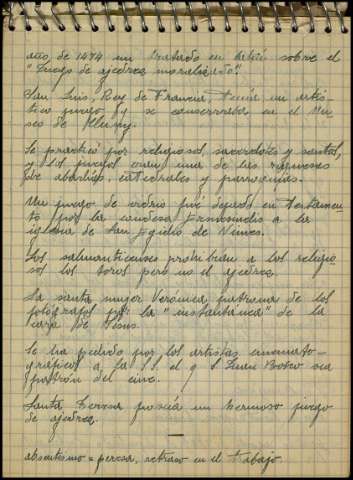 año de 1474 un tratado en latín sobre el
"Juego de ajedrez moralizado".
San Luis, Rey de Francia, tenía un artís-
tico juego q. se conservaba en el Mu-
seo de Cluny.
Se practicó por religiosos, sacerdotes y santos,
y los juegos eran una de las riquezas
de abadías, catedrales y parroquias.
Un juego de vidrio fué legado en testamen-
to por la condesa a la
iglesia de San Egidio de Nimes.
Los salmanticenses prohibían a los religio
sos los toros pero no el ajedrez.
La santa mujer Verónica, patrona de los
fotógrafos por la "instantánea" de la
cara de Jesús.
Se ha pedido por los artistas cinemato-
gráficos a la S. S. el q S. Juan Bosco sea
patrón del cine.
Santa Teresa poseía un hermoso juego
de ajedrez.
—
absentismo = pereza, retraso en el trabajo.